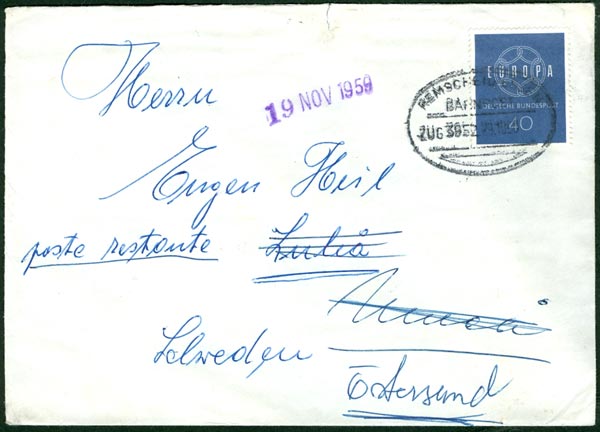 EUROPA
DEUTSCHE BUNDESPOST
40
REMSCHEID
BAHNPOST
ZUG 3952
19 NOV 1959
Herrn
Eugen Heil
poste restante Luleå
Schweden
Östersund